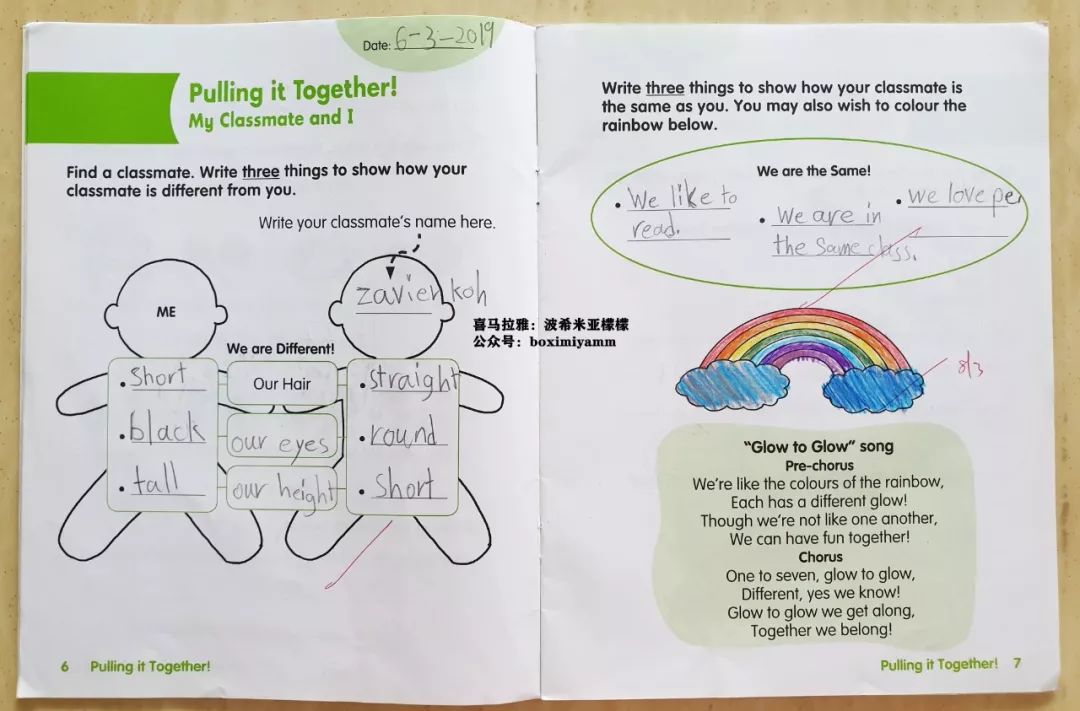 Date: 6-3-2019
Pulling it Together!
My Classmate and I
Find a classmate. Write three things to show how your
classmate is different from you.
Write your classmate's name here.
ME
zavier koh
We are Different!
short
Our Hair
straight
black
our eyes
round
tall
our height
short
6 Pulling it Together!
喜马拉雅：波希米亚檬檬
公众号：boximiyamm
Write three things to show how your classmate is
the same as you. You may also wish to colour the
rainbow below.
We are the Same!
We like to
read.
We are in
the same class.
we love per
8/3
"Glow to Glow" song
Pre-chorus
We're like the colours of the rainbow,
Each has a different glow!
Though we're not like one another,
We can have fun together!
Chorus
One to seven, glow to glow,
Different, yes we know!
Glow to glow we get along,
Together we belong!
Pulling it Together! 7